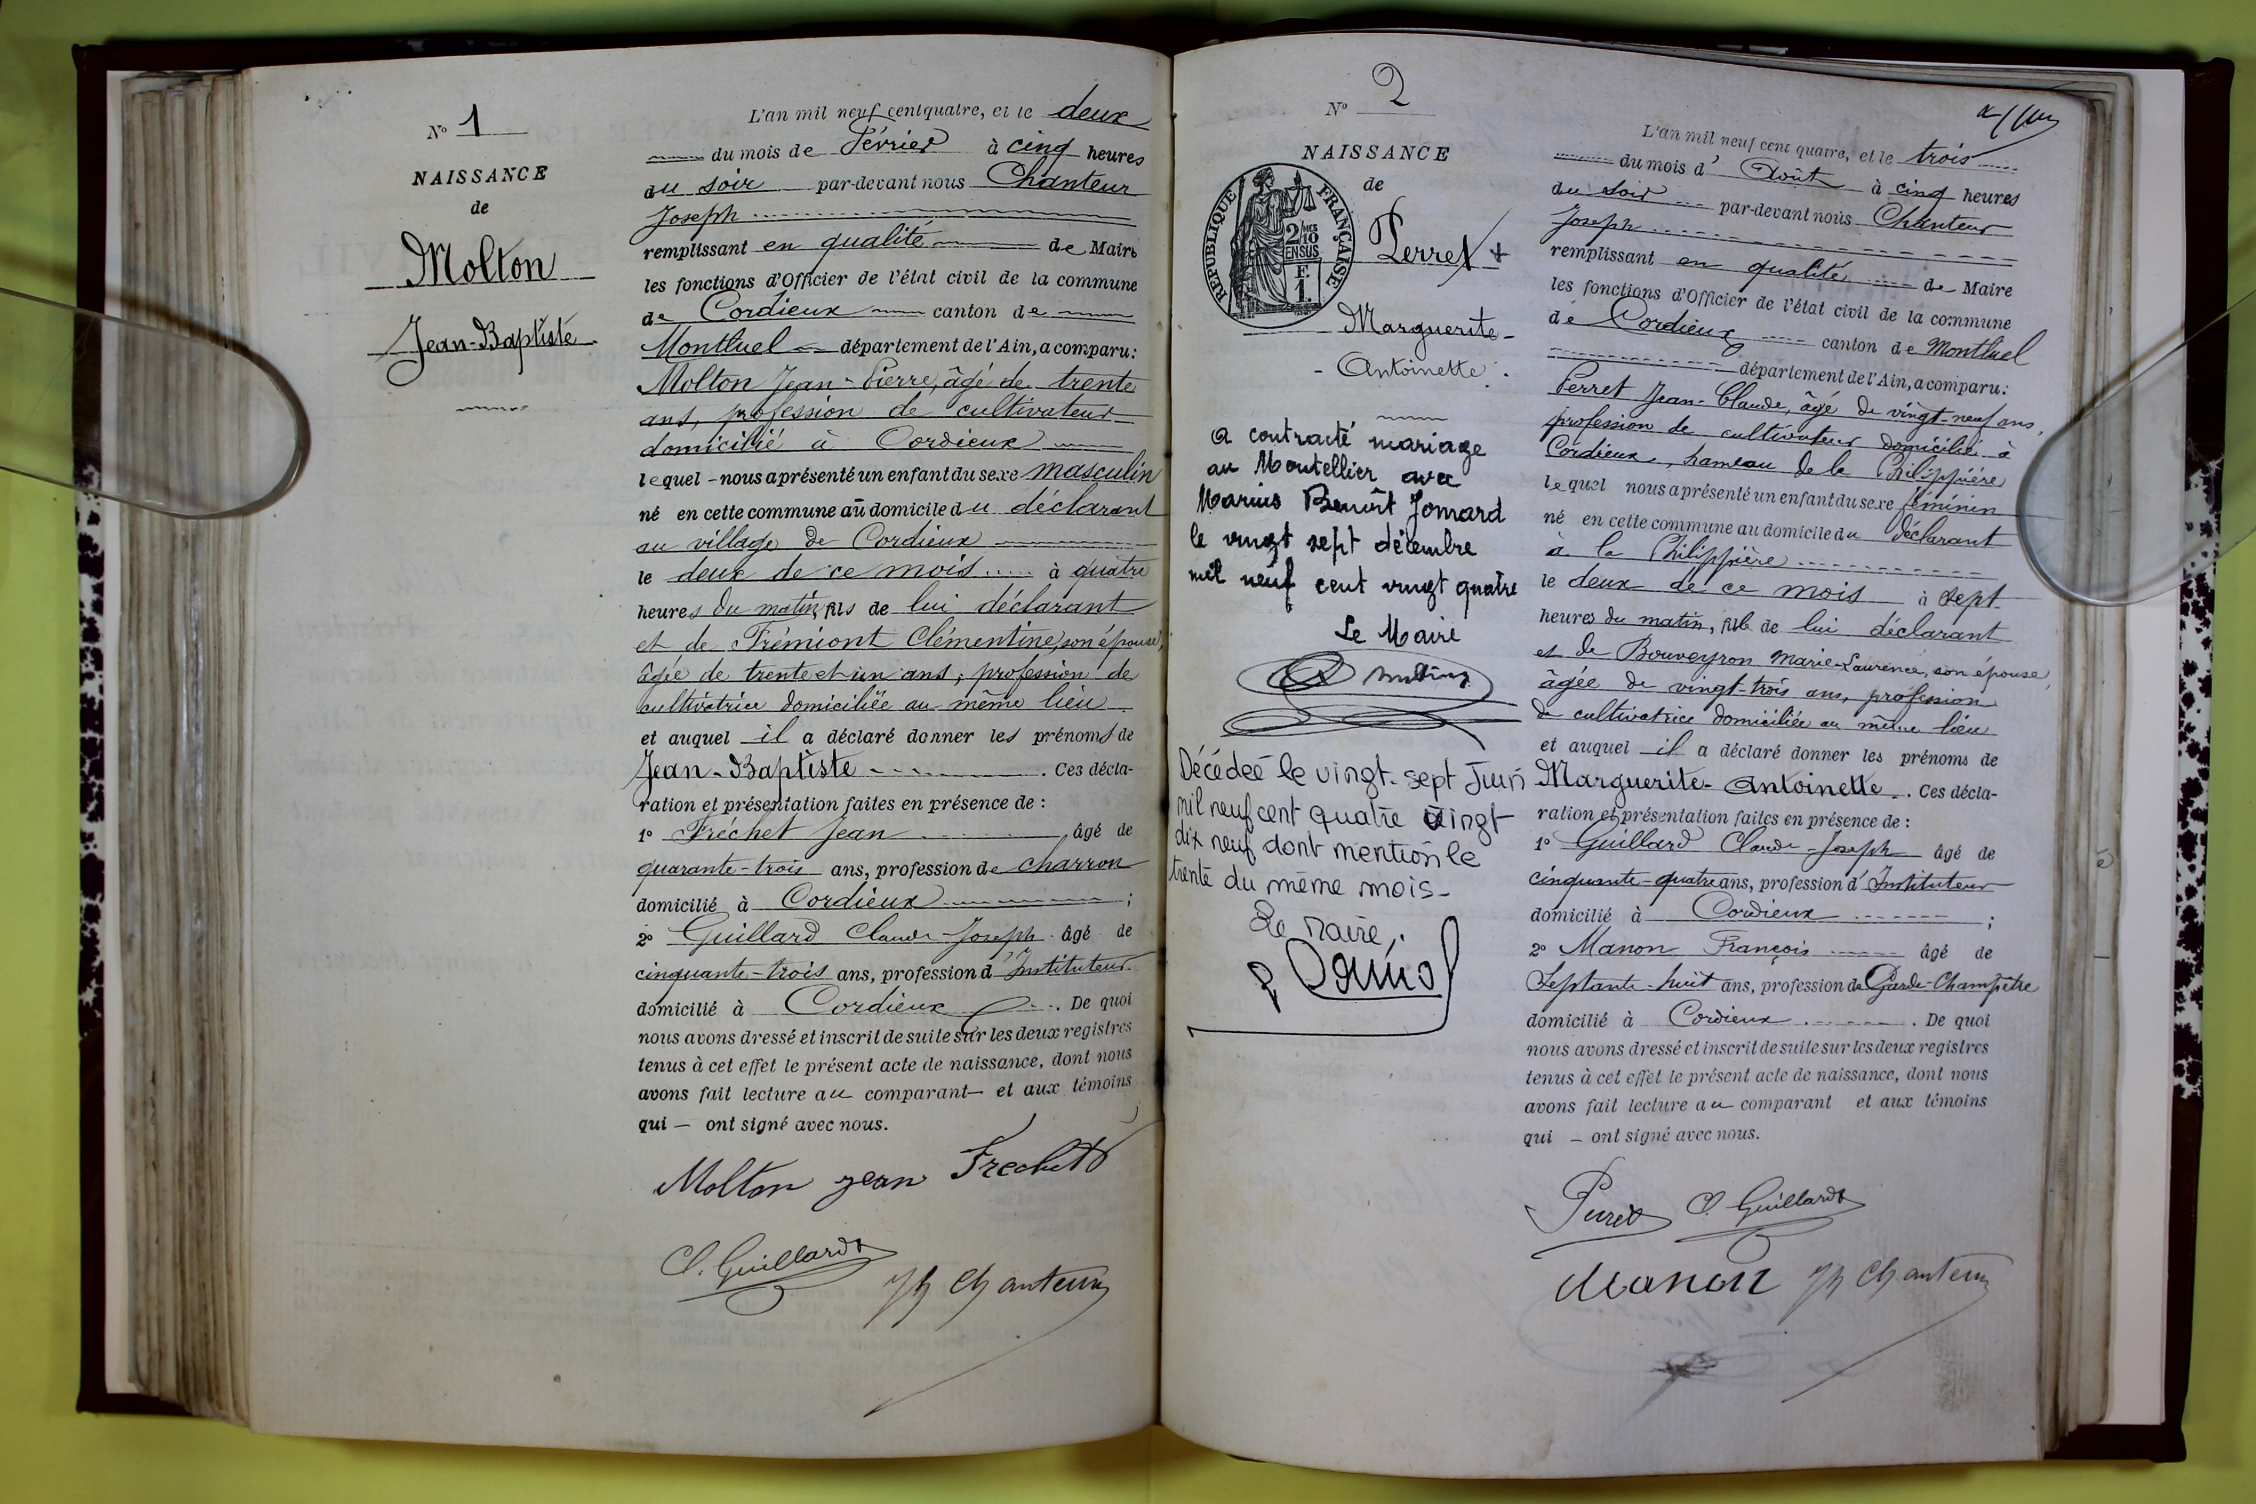 N° 1
NAISSANCE
de
Molton
Jean-Baptiste
L'an mil neuf cent quatre, et le deux
du mois de Février à cinq heures
du soir par-devant nous Chanteur
Joseph
remplissant en qualité de Maire
les fonctions d'Officier de l'état civil de la commune
de Cordieux canton de
Montluel département de l'Ain, a comparu:
Molton Jean-Pierre, âgé de trente
ans, profession de cultivateur
domicilié à Cordieux
lequel nous a présenté un enfant du sexe masculin
né en cette commune au domicile du déclarant
au village de Cordieux
le deux de ce mois à quatre
heures du matin, fils de lui déclarant
et de Frémiont Clémentine, son épouse,
âgée de trente et un ans, profession de
cultivatrice domiciliée au même lieu
et auquel il a déclaré donner les prénoms de
Jean-Baptiste. Ces décla-
ration et présentation faites en présence de :
1° Fréchet Jean, âgé de
quarante-trois ans, profession de charron
domicilié à Cordieux ;
2° Guillard Claude-Joseph âgé de
cinquante-trois ans, profession d'Instituteur
domicilié à Cordieux. De quoi
nous avons dressé et inscrit de suite sur les deux registres
tenus à cet effet le présent acte de naissance, dont nous
avons fait lecture au comparant et aux témoins
qui — ont signé avec nous.
Molton jean Frechet
C. Guillard
Jh Chanteur
N° 2
NAISSANCE
de
RÉPUBLIQUE FRANÇAISE
2/10 MES
EN SUS
F.
1.
Perret +
Marguerite-
Antoinette.
a contracté mariage
au Montellier avec
Marius Benoît Jomard
le vingt sept décembre
mil neuf cent vingt quatre
Le Maire
Décédée le vingt-sept Juin
mil neuf cent quatre vingt
dix neuf dont mention le
trente du même mois-
Le Maire,
L'an mil neuf cent quatre, et le trois
du mois d'Août à cinq heures
du soir par-devant nous Chanteur
Joseph
remplissant en qualité de Maire
les fonctions d'Officier de l'état civil de la commune
de Cordieux canton de Montluel
département de l'Ain, a comparu:
Perret Jean-Claude, âgé de vingt-neuf ans,
profession de cultivateur domicilié à
Cordieux, hameau de la Philippière
lequel nous a présenté un enfant du sexe féminin
né en cette commune au domicile du déclarant
à la Philippière
le deux de ce mois à sept
heures du matin, fille de lui déclarant
et de Bouveyron Marie-Laurence, son épouse,
âgée de vingt-trois ans, profession
de cultivatrice domiciliée au même lieu
et auquel il a déclaré donner les prénoms de
Marguerite-Antoinette. Ces décla-
ration et présentation faites en présence de :
1° Guillard Claude-Joseph âgé de
cinquante-quatre ans, profession d'Instituteur
domicilié à Cordieux ;
2° Manon François âgé de
Septante-huit ans, profession de Garde-Champêtre
domicilié à Cordieux. De quoi
nous avons dressé et inscrit de suite sur les deux registres
tenus à cet effet le présent acte de naissance, dont nous
avons fait lecture au comparant et aux témoins
qui — ont signé avec nous.
Perret C. Guillard
Manon Jh Chanteur